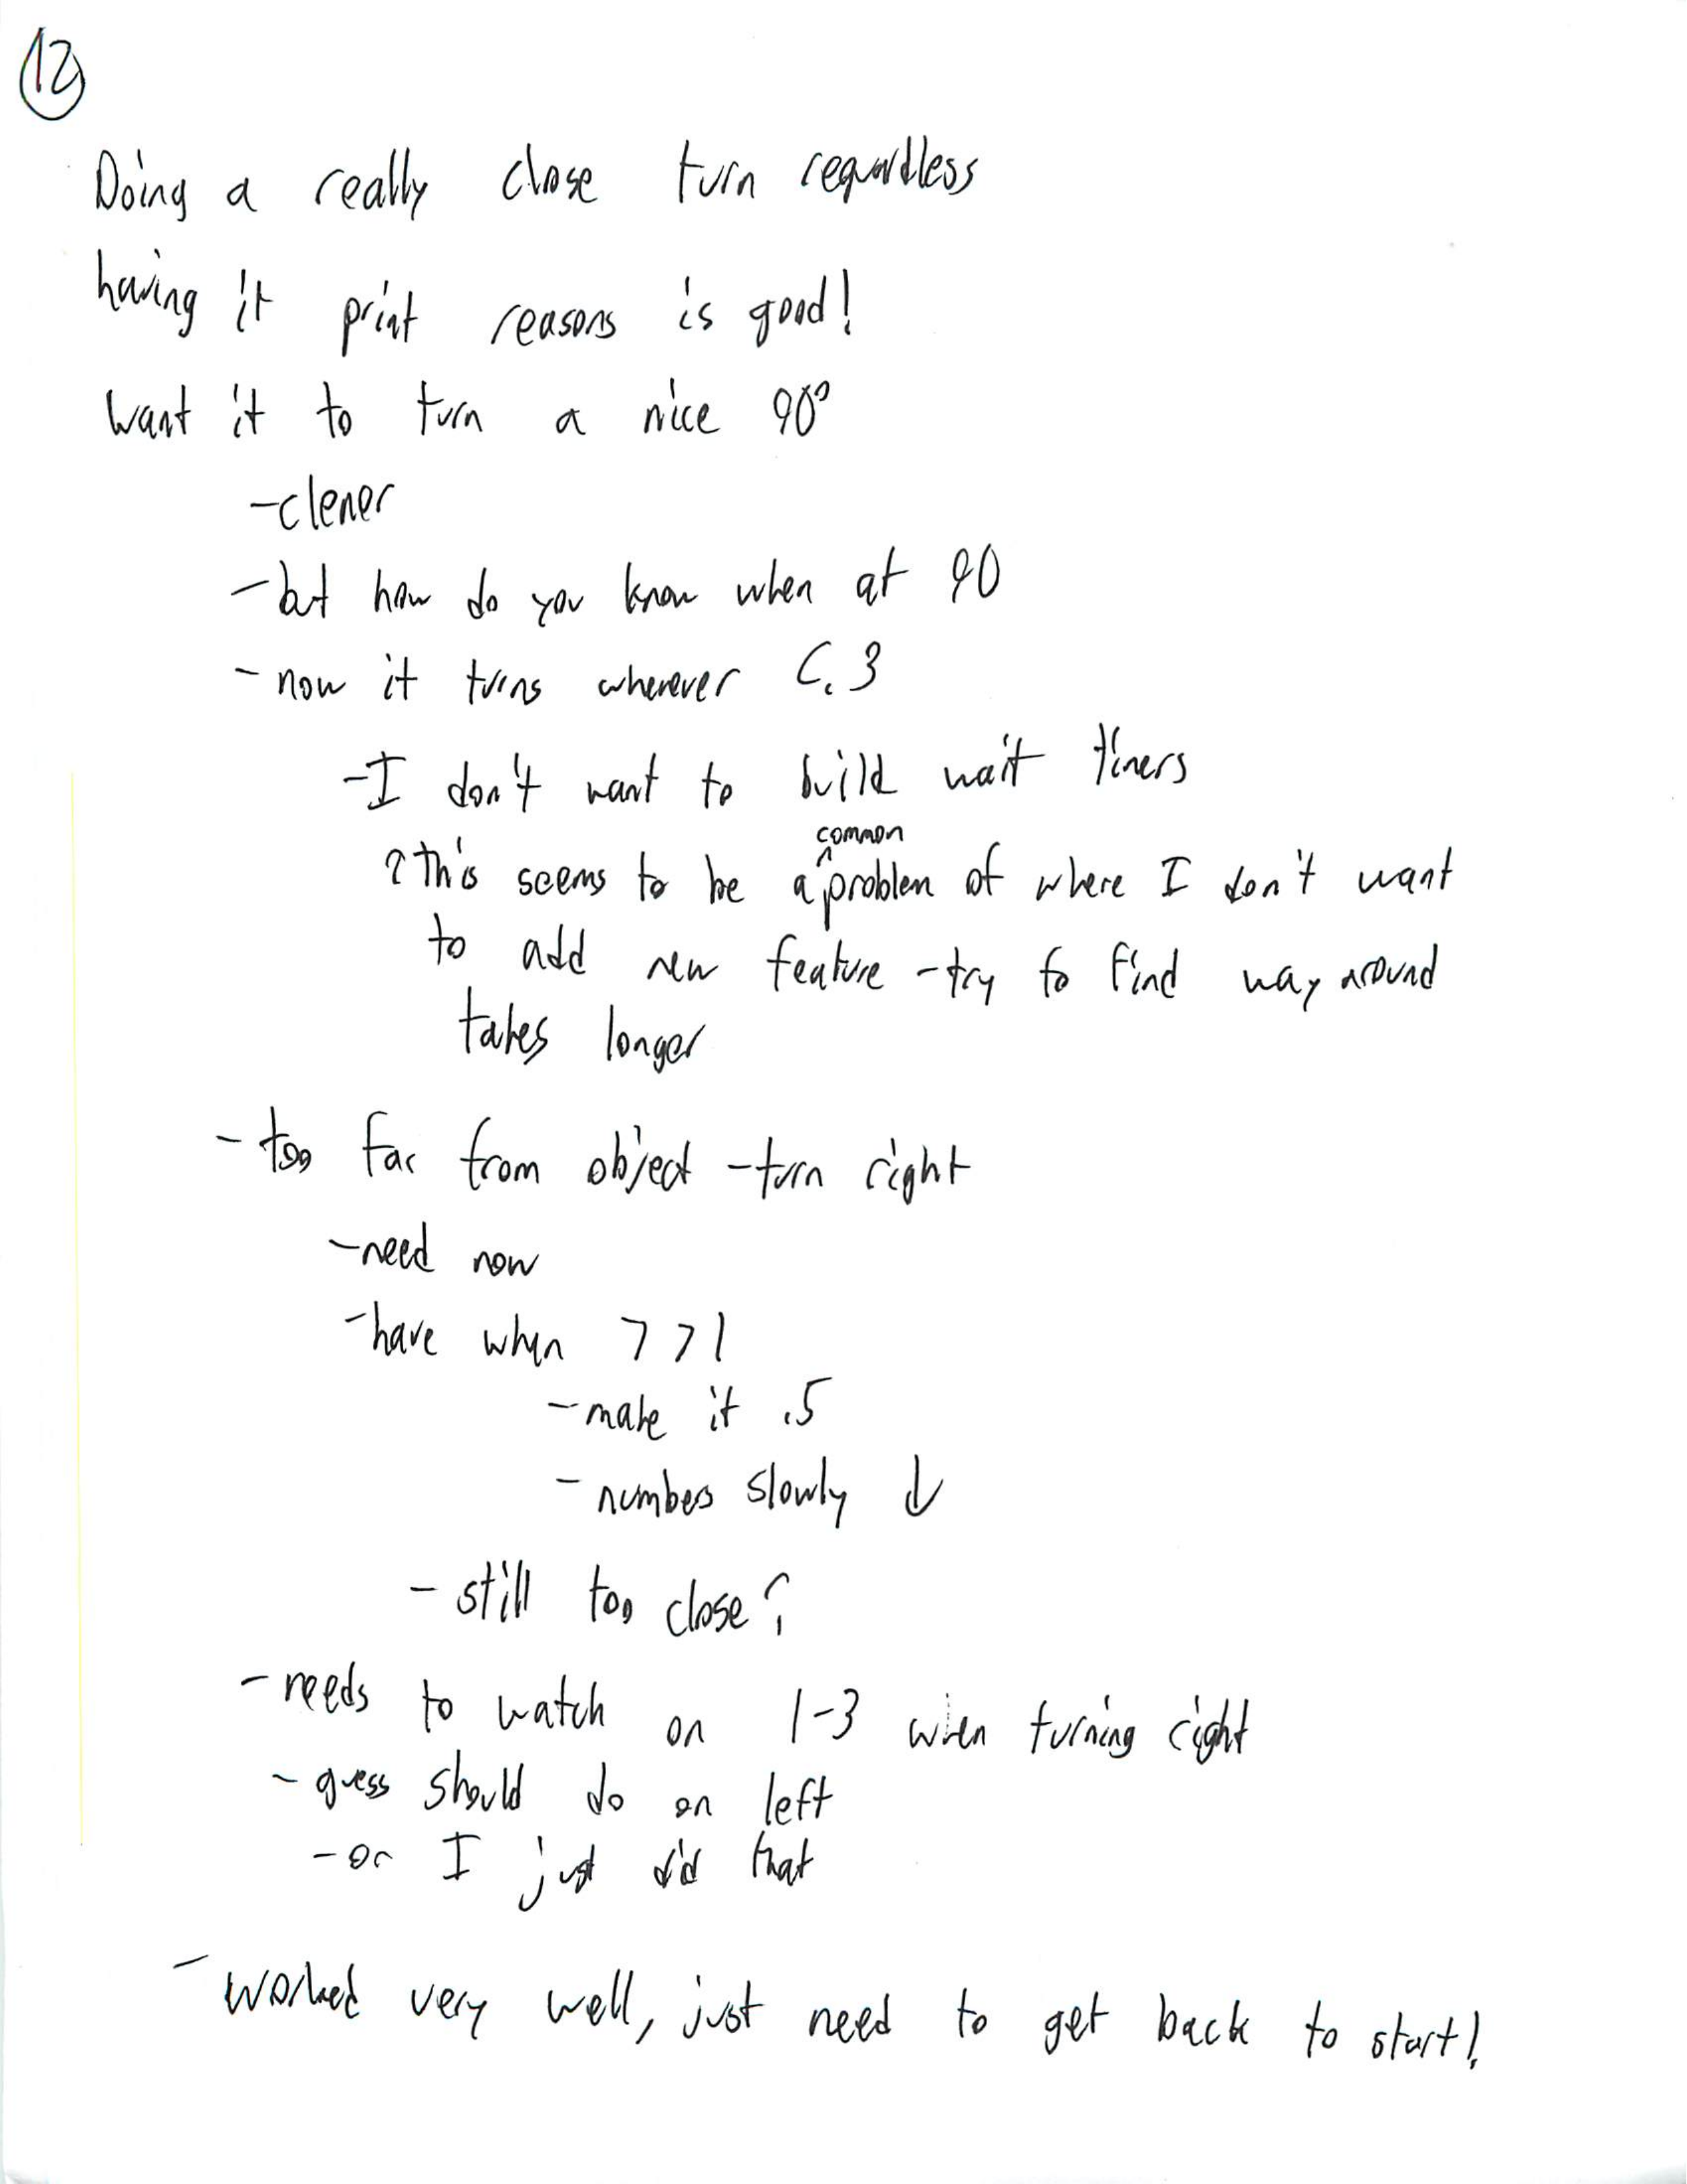 12
Doing a really close turn regardless
having it print reasons is good!
Want it to turn a nice 90°
-clener
-but how do you know when at 90
-now it turns whenever <.3
-I don't want to build wait timers
? this seems to be a common problem of where I don't want
to add new feature -try to find way around
takes longer
-too far from object -turn right
-need now
-have when > >1
-make it .5
-numbers slowly ↓
-still too close?
-needs to watch on 1-3 when turning right
-guess should do on left
-or I just did that
-worked very well, just need to get back to start!